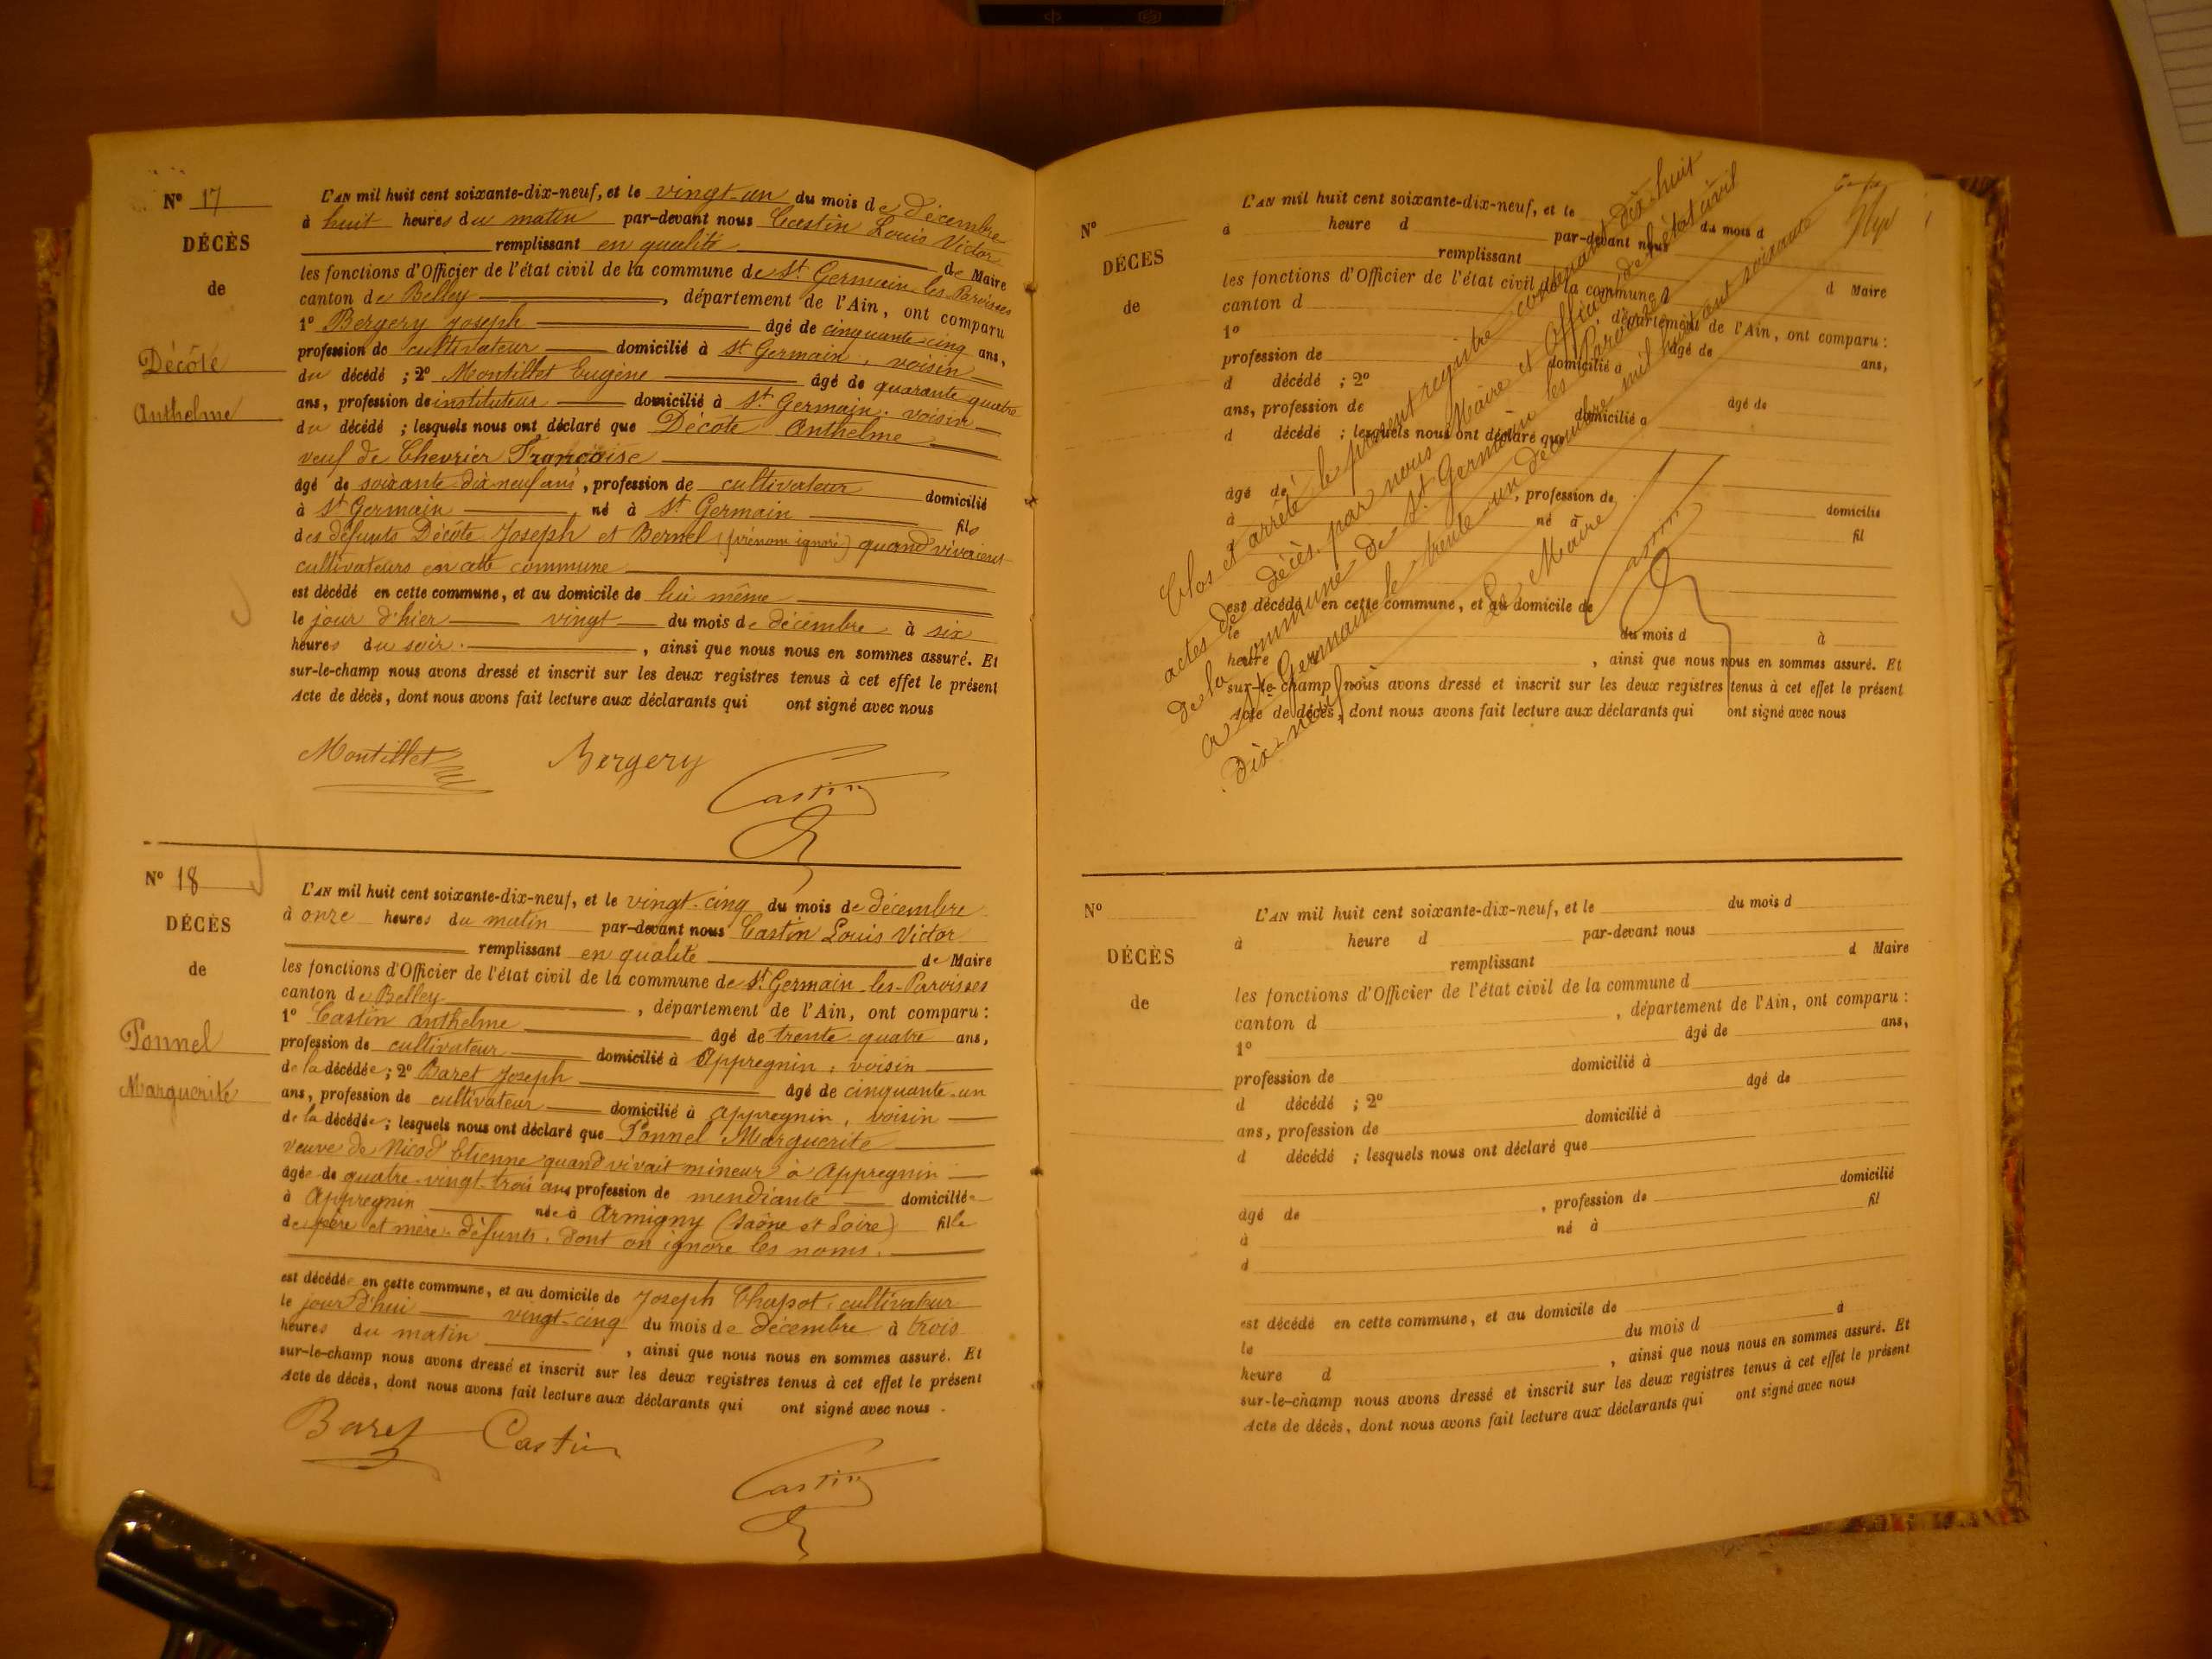 N° 17
DÉCÈS
de
Décôte
Anthelme
L'AN mil huit cent soixante-dix-neuf, et le vingt-un du mois de décembre
à huit heures du matin par-devant nous Castin Louis Victor
remplissant en qualité de Maire
les fonctions d'Officier de l'état civil de la commune de St Germain-les-Paroisses
canton de Belley, département de l'Ain, ont comparu
1° Bergery Joseph âgé de cinquante-cinq ans,
profession de cultivateur domicilié à St Germain, voisin
du décédé ; 2° Montillet Eugène âgé de quarante quatre
ans, profession de instituteur domicilié à St Germain, voisin
du décédé ; lesquels nous ont déclaré que Décôte Anthelme
veuf de Chevrier Françoise
âgé de soixante-dix-neuf ans, profession de cultivateur domicilié
à St Germain né à St Germain fils
des défunts Décôte Joseph et Bernel (prénom ignoré) quand vivaient
cultivateurs en cette commune
est décédé en cette commune, et au domicile de lui même
le jour d'hier vingt du mois de décembre à six
heures du soir, ainsi que nous nous en sommes assuré. Et
sur-le-champ nous avons dressé et inscrit sur les deux registres tenus à cet effet le présent
Acte de décès, dont nous avons fait lecture aux déclarants qui ont signé avec nous
Montillet Bergery Castin
N° 18
DÉCÈS
de
Ponnel
Marguerite
L'AN mil huit cent soixante-dix-neuf, et le vingt-cinq du mois de décembre
à onze heures du matin par-devant nous Castin Louis Victor
remplissant en qualité de Maire
les fonctions d'Officier de l'état civil de la commune de St Germain-les-Paroisses
canton de Belley, département de l'Ain, ont comparu :
1° Castin Anthelme âgé de trente-quatre ans,
profession de cultivateur domicilié à Appregnin, voisin
de la décédée ; 2° Baret Joseph âgé de cinquante-un
ans, profession de cultivateur domicilié à Appregnin, voisin
de la décédée ; lesquels nous ont déclaré que Ponnel Marguerite
veuve de Nicod Etienne quand vivait mineur à Appregnin
âgée de quatre-vingt-trois ans profession de mendiante domiciliée
à Appregnin née à Armigny (Saône et Loire) fille
de père et mère défunts, dont on ignore les noms.
est décédée en cette commune, et au domicile de Joseph Chapot, cultivateur
le jour d'hui vingt-cinq du mois de décembre à trois
heures du matin, ainsi que nous nous en sommes assuré. Et
sur-le-champ nous avons dressé et inscrit sur les deux registres tenus à cet effet le présent
Acte de décès, dont nous avons fait lecture aux déclarants qui ont signé avec nous.
Baret Castin
Castin
N°
DÉCES
de
L'AN mil huit cent soixante-dix-neuf, et le du mois d
à heure d par-devant nous
remplissant d Maire
les fonctions d'Officier de l'état civil de la commune d
canton d département de l'Ain, ont comparu :
1° âgé de ans,
profession de domicilié à
d décédé ; 2° âgé de
ans, profession de domicilié à
d décédé ; lesquels nous ont déclaré que
âgé de , profession de domicilié
à né à fil
est décédé en cette commune, et au domicile de
le du mois d à
heure , ainsi que nous nous en sommes assuré. Et
sur-le-champ nous avons dressé et inscrit sur les deux registres tenus à cet effet le présent
Acte de décès, dont nous avons fait lecture aux déclarants qui ont signé avec nous
Clos et arrêté le présent registre contenant dix-huit
actes de décès, par nous Maire et Officier de l'état civil
de la commune de St Germain les Paroisses
à St Germain le trente-un décembre mil huit cent soixante
dix-neuf.
Le Maire
Castin
N°
DÉCÈS
de
L'AN mil huit cent soixante-dix-neuf, et le du mois d
à heure d par-devant nous
remplissant d Maire
les fonctions d'Officier de l'état civil de la commune d
canton d , département de l'Ain, ont comparu :
1° âgé de ans,
profession de domicilié à
d décédé ; 2° âgé de
ans, profession de domicilié à
d décédé ; lesquels nous ont déclaré que
âgé de , profession de domicilié
à né à fil
d
est décédé en cette commune, et au domicile de
le du mois d à
heure d , ainsi que nous nous en sommes assuré. Et
sur-le-champ nous avons dressé et inscrit sur les deux registres tenus à cet effet le présent
Acte de décès, dont nous avons fait lecture aux déclarants qui ont signé avec nous